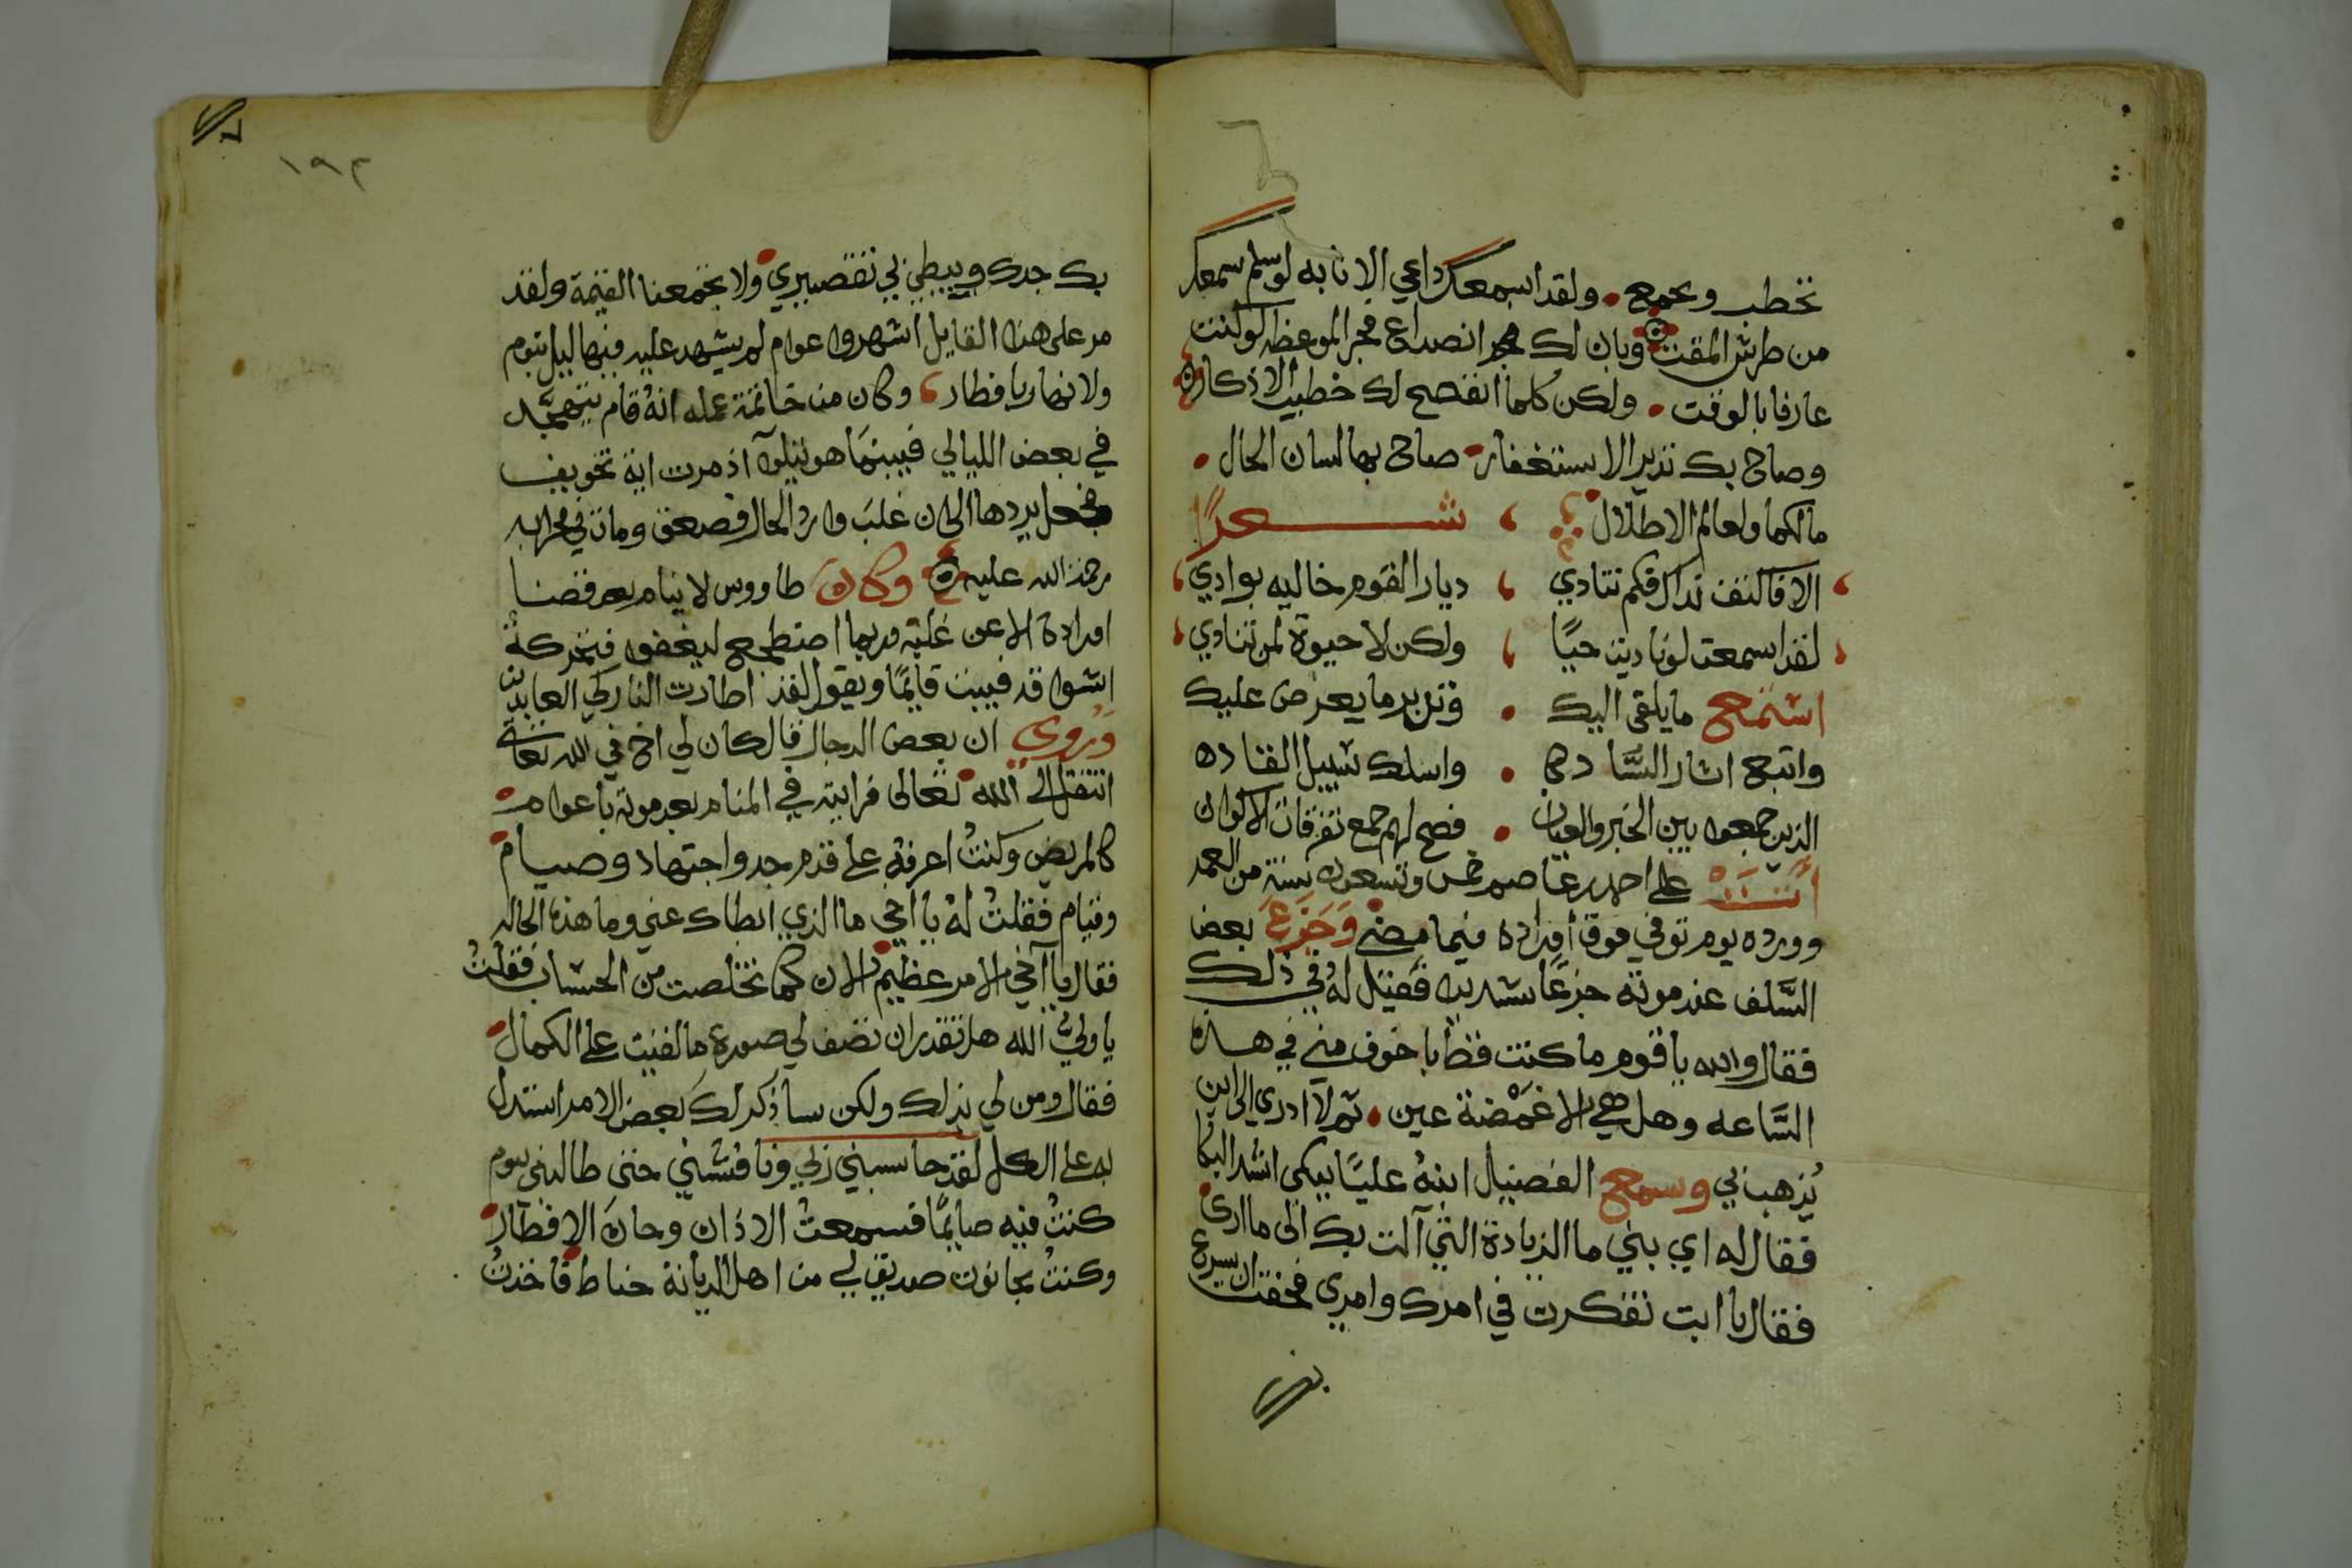 تخطب وبجمع ولقد اسمعك داعي الانابه لو سلم سمعك
من طرش المقت وبان لك فجر انصداع فجر الموعظه لو كنت
عارفا بالوقت ولكن كلما افصح لك خطيب الاذكار
وصاح بك نذير الاستغفار صاح بها لسان الحال
مالكما ولعالم الاطلال شعرًا
الا فالنفف نداك فكم تنادي ديار القوم خاليه بوادي
لقد اسمعت لو ناديت حيًا ولكن لا حيوة لمن تنادي
استمع ما يلقى اليك وتدبر ما يعرض عليك
واتبع اثار السَّاده واسلك سبيل القاده
الذين جمعوا بين الخبر والعيان فصح لهم جمع تفرقات الاكوان
اتت على احمد بن عاصم خمس وتسعون سنة من العمر
وورده يوم توفي فوق أوراده فيما مضى وَجَزَعَ بعض
السَّلف عند موته جزعًا شديدا فقيل له في ذلك
فقال والله يا قوم ما كنت قط باخوف مني في هذه
السَّاعه وهل هي الا غمْضة عين ثم لا ادري الى اين
يُذهب بي وسمع الفضيل ابنهُ عليًا يبكي اشد البكا
فقال له اي بني ما الزيادة التي آلت بك الى ما ارى
فقال يا ابت تفكرت في امرك وامري فخفت ان يسرع
بك
١٩٢
بك جدك ويبطي بي تقصيري ولا تجمعنا القيمة ولقد
مر على هذا القايل اشهر واعوام لم يشهد عليه فيها ليل بنوم
ولا نهار بافطار وكان من خاتمة عمله انهُ قام يتهجَّد
في بعض الليالي فبينما هو يتلو اذ مرت اية تخويف
فجعل يرددها الى ان غلب وارد الحال فصعق ومات في محرابه
رحمة الله عليه وكان طاووس لا ينام بعد قضا
اوراده الا عن غلبة وربما اضطجع ليغفو فتحركهُ
اشواقه فيبيت قايمًا ويقول لقد اطارت النار كرى العابدين
وَرُوي ان بعض الرجال قال كان لي اخ في الله تعالى
انتقل الى الله تعالى فرايته في المنام بعد موته باعوام
كالمريض وكنتُ اعرفهُ على قدم جد واجتهاد وصيام
وقيام فقلتُ لهُ يا اخي ما الذي ابطاك عني وما هذه الحاله
فقال يا اخي الامر عظيم الان كما تخلصت من الحساب فقلتُ
يا وليَّ الله هل تقدر ان تصف لي صورة ما لقيت على الكمال
فقال ومن لي بذلك ولكن ساذكر لك بعض الامر استدل
به على الكل لقد حاسبني ربي وناقشني حتى طالبني بيوم
كنتُ فيه صايمًا فسمعتُ الاذان وحان الافطار
وكنتُ بحانوت صديق لي من اهل الديانة حناط فاخذتُ